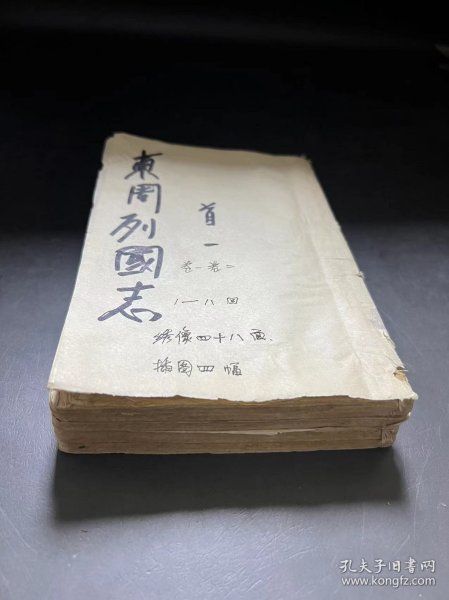 東周列國志
首一
卷一卷二
1—八回
绣像四十八面.
插图四幅
孔夫子旧书网
www.kongfz.com